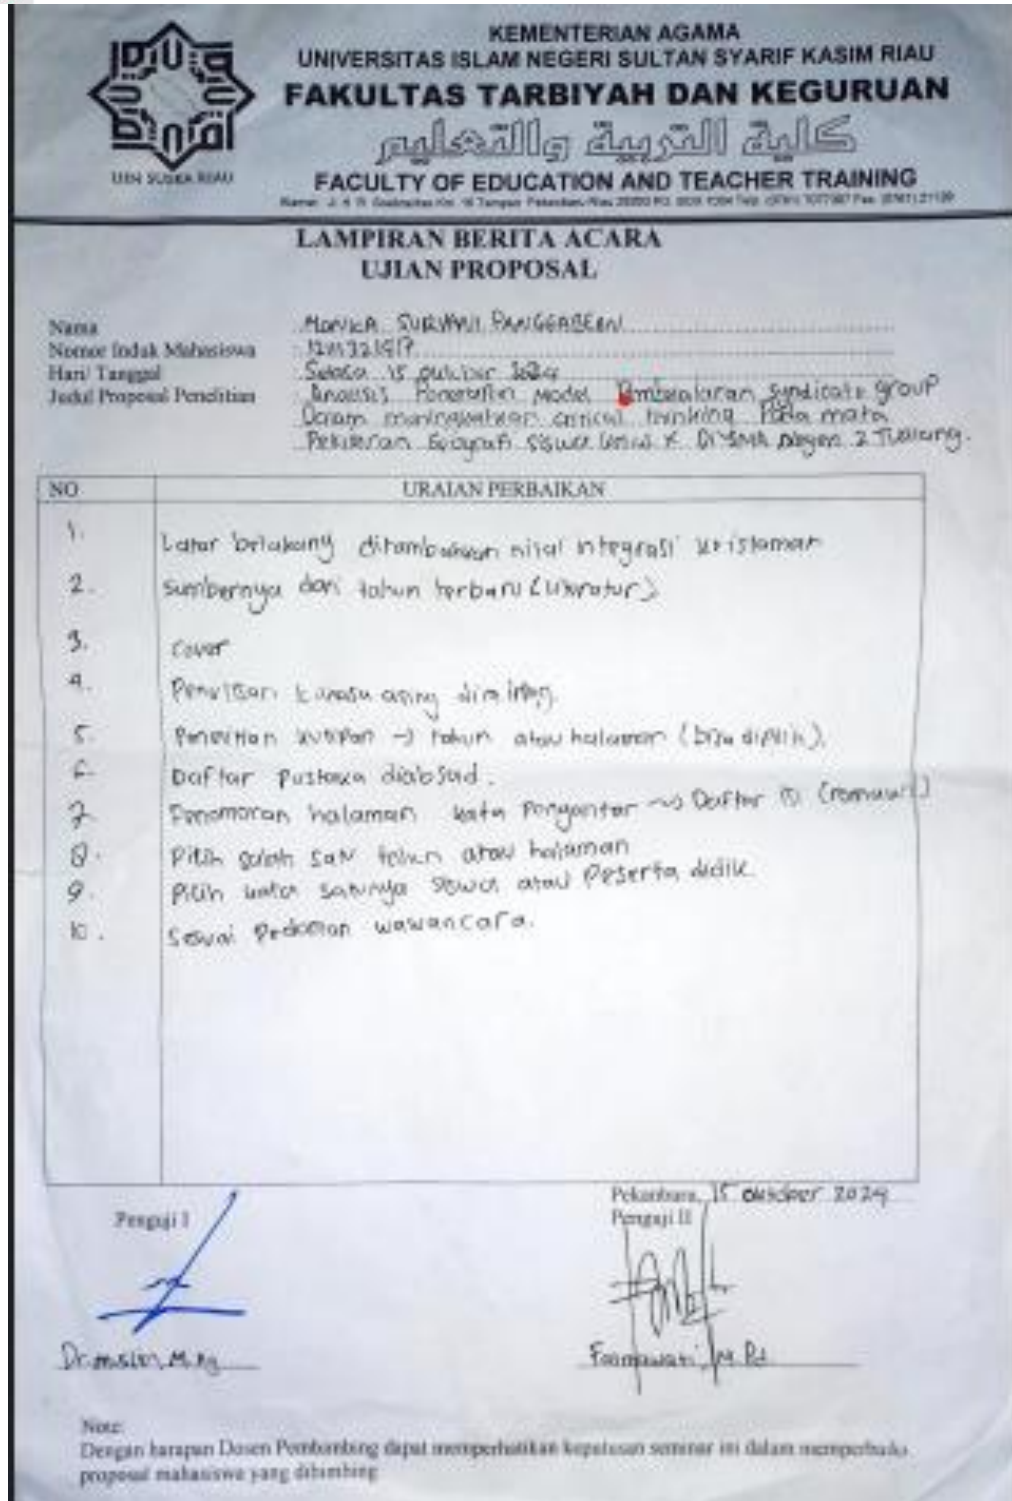 UIN SUSKA RIAU
KEMENTERIAN AGAMA
UNIVERSITAS ISLAM NEGERI SULTAN SYARIF KASIM RIAU
FAKULTAS TARBIYAH DAN KEGURUAN
كلية التربية والتعليم
FACULTY OF EDUCATION AND TEACHER TRAINING
LAMPIRAN BERITA ACARA
UJIAN PROPOSAL
Nama : MONICA SURYANI PANGGABEAN
Nomor Induk Mahasiswa :
Hari/ Tanggal : Selasa 15 oktober 2024
Judul Proposal Penelitian : Analisis Penerapan Model Pembelajaran syndicate group
Dalam meningkatkan critical thinking Pada mata
Pelajaran Geografi siswa kelas X Di SMA Negeri 2 Tualang.
NO URAIAN PERBAIKAN
1. Latar belakang ditambahkan nilai integrasi keislaman
2. Sumbernya dari tahun terbaru (Literatur)
3. Cover
4. Penulisan bahasa asing dimiring.
5. Penulisan kutipan → tahun atau halaman (bisa dipilih).
6. Daftar pustaka diabsad.
7. Penomoran halaman kata Pengantar Daftar isi (romawi)
8. Pilih salah satu tahun atau halaman
9. Pilih kata satunya siswa atau Peserta didik.
10. Sesuai Pedoman wawancara.
Pekanbaru, 15 oktober 2024
Penguji I Penguji II
Dr. M.Ag M.Pd
Note:
Dengan harapan Dosen Pembimbing dapat memperhatikan keputusan seminar ini dalam memperbaiki
proposal mahasiswa yang dibimbing